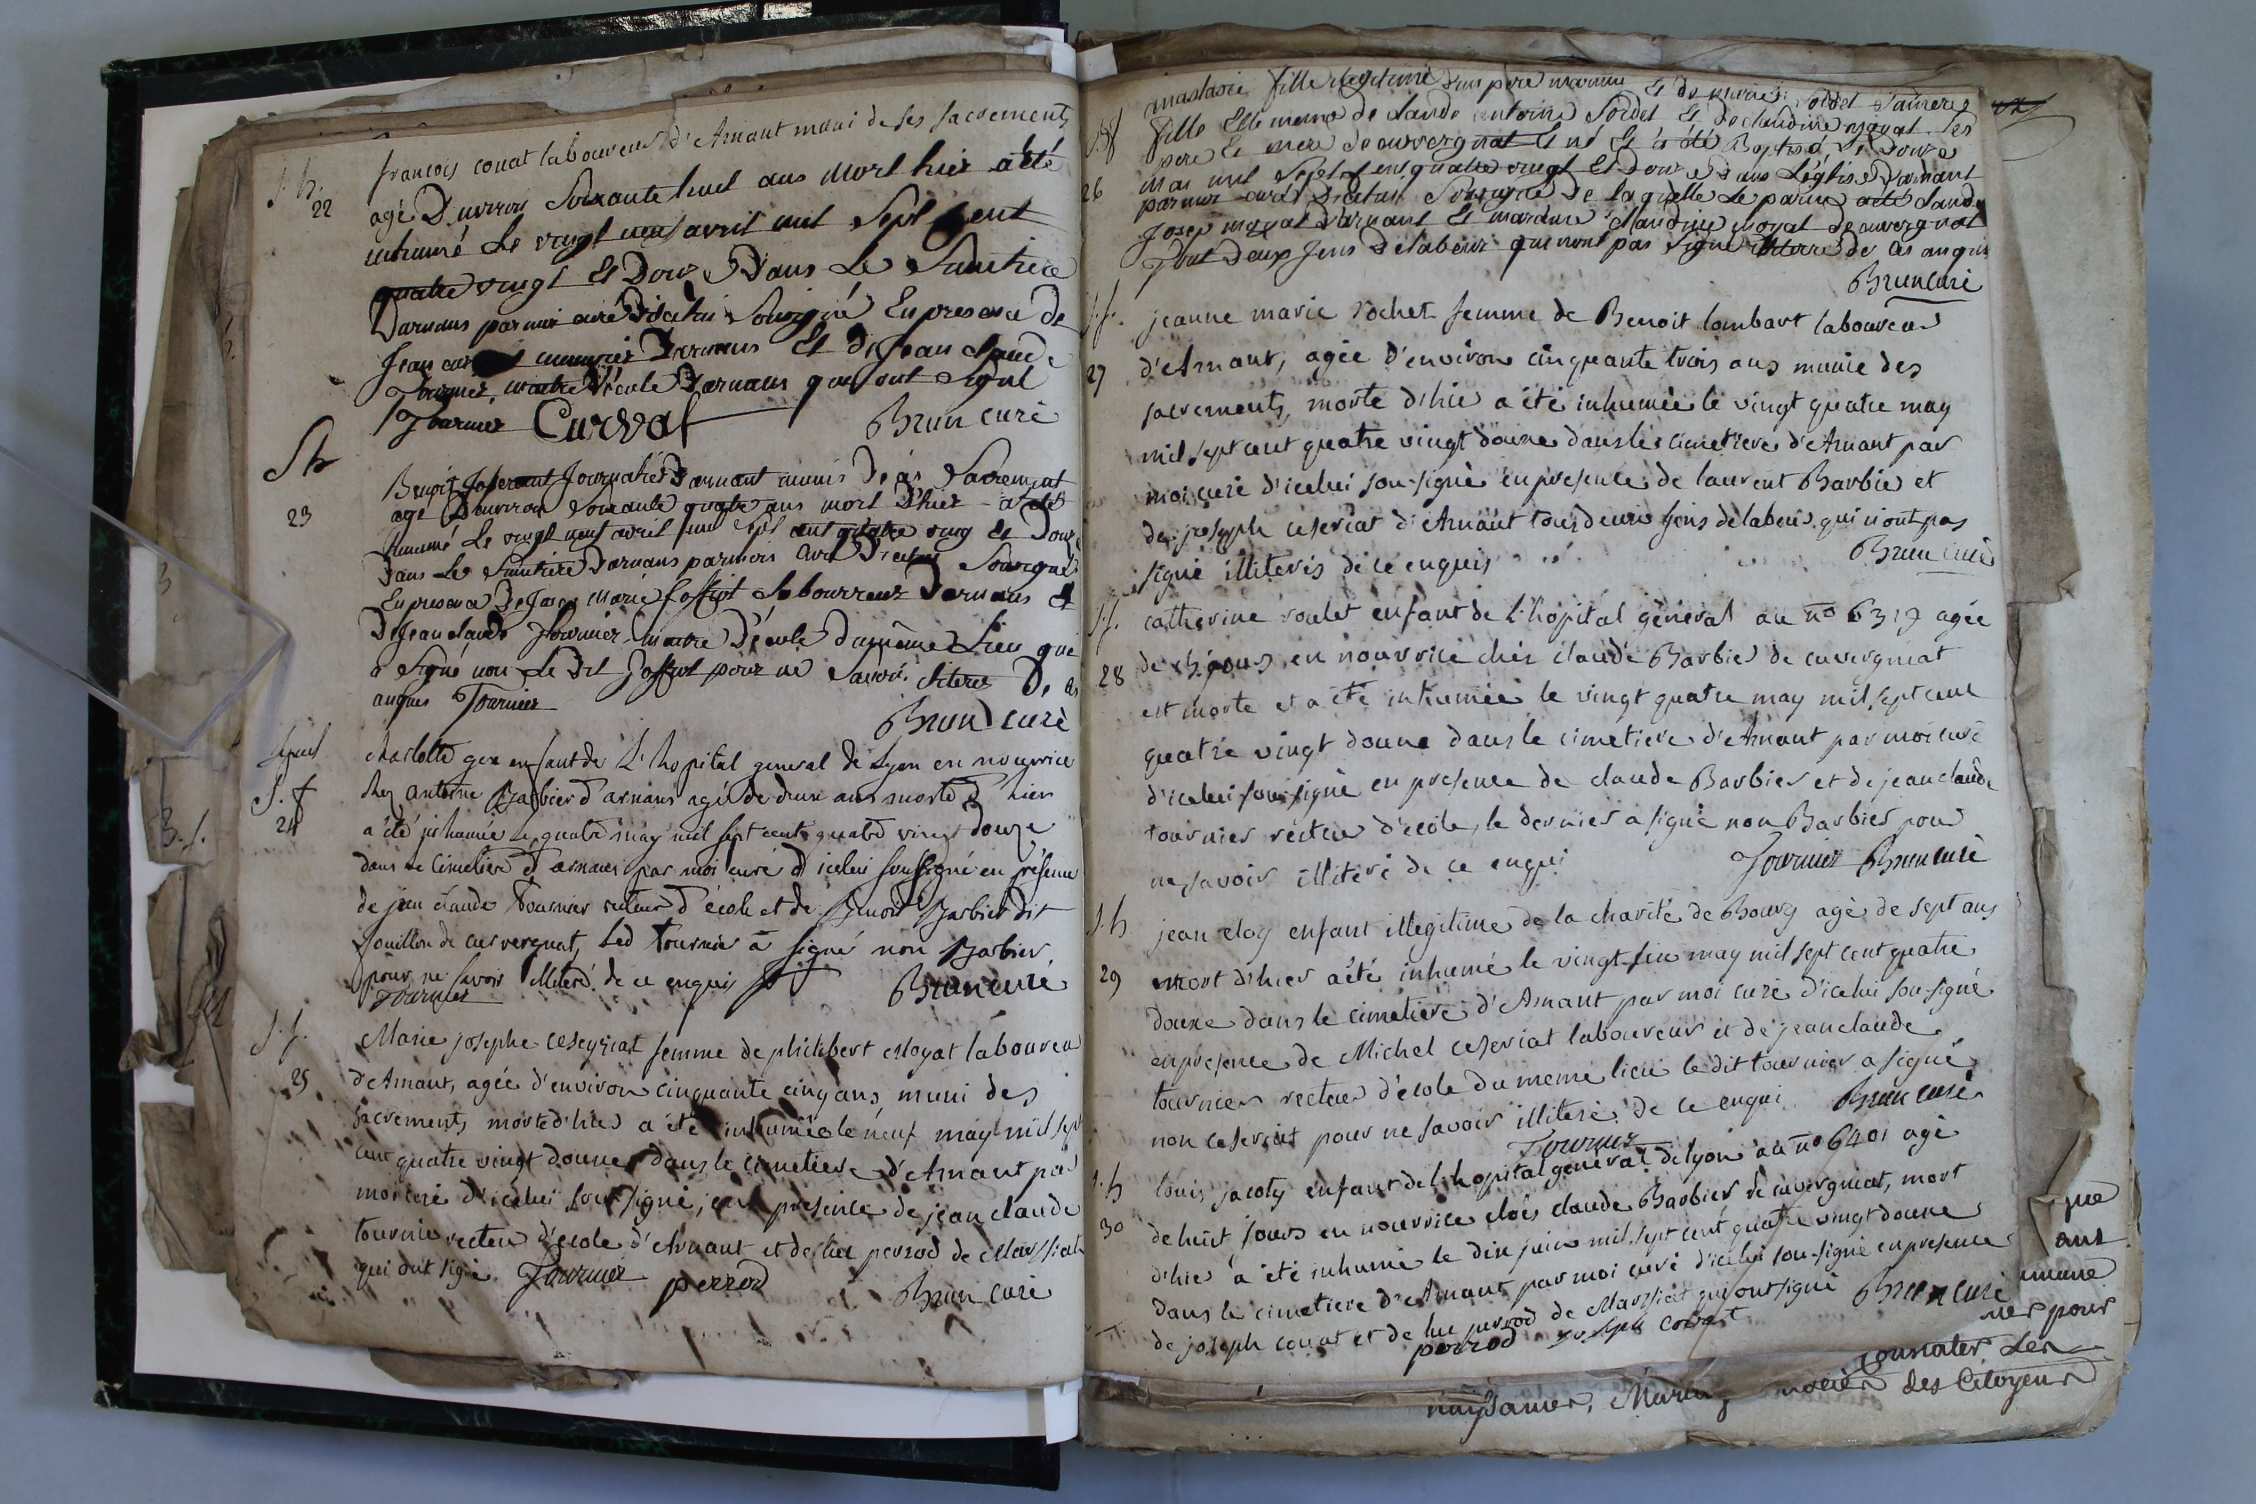 S. h.
22
francois conat laboureur d'Arnant muni de ses sacrements
agé D'environ Soixante huit ans mort hier a été
inhumé Le vingt avril mil Sept Cent
quatre vingt Et Douze Dans Le Simitiere
Darnans par moi curé D'icelui Sousigné En presence de
Jean Darnans Et de Jean Claude
Tournier, maitre D'école Darnans qui ont Signé
Tournier Curval Brun curé
Sh
23
Benoit Journalier Darnant munis De ses Sacrement
agé D'environ Soixante quatre ans mort D'hier a été
Inhumé Le vingt neuf avril mil Sept cent quatre ving Et Douze
Dans Le Simitiere Darnans par moi curé D'icelui Sousigné
En presence De Josep Marie Joffret Labourreur Darnans Et
De Jean claude Tournier maitre D'école du même Lieu qui
a Signé non Le Dit Joffret pour ne Savoir illiteré De ce
anquis Tournier
Brun curé
S. f
24
charlotte gex enfant de L'hopital general de Lyon en nourrice
chez antoine Barbier d'arnans agé de deux ans morte d'hier
a été inhumée le quatre may mil sept cent quatre vingt douze
dans le Cimetiere d'arnans par moi curé d'icelui soussigné en présence
de jean claude Tournier recteur d'école et de Benoit Barbier dit
Jouillon de cuvergnat, Led Tournier a signé non Barbier
pour ne savoir illiteré de ce enquis
Tournier Brun curé
S. f.
25
Marie josephe ceseyriat femme de philibert Moyat laboureur
d'Arnant, agée d'environ cinquante cinq ans, muni des
sacrements, morte d'hier a été inhumée le neuf may mil sept
cent quatre vingt douze dans le cimetiere d'Arnant par
moi curé d'icelui sous-signé, en presence de jean claude
tournier recteur d'école d'Arnant et de luc perrod de Marssiat
qui ont signé. Tournier perrod Brun curé
S. f
26
anastasie fille legitime d'un pere inconnu Et de marie Soldet Sa mere
fille Elle meme de claude antoine Soldet Et De claudine moyat Ses
pere Et mere de cuvergnat Est né Et a été Baptisé Le Douze
mai mil Sept cent quatre vingt Et Douze Dans L'église D'arnant
par moi curé D'icelui Sousigné De laquelle Le parin a été claude
Josep moyat D'arnant Et maraine claudine moyat De cuvergnat
Tout Deux Jens De labeur qui n'ont pas Signé illiteré De ces anquis
Brun curé
S. f.
27
jeanne marie rochet femme de Benoit lombart laboureur
d'Arnant, agée d'environ cinquante trois ans munie des
sacrements, morte d'hier a été inhumée le vingt quatre may
mil sept cent quatre vingt douze dans le cimetiere d'Arnant par
moi curé d'icelui sou-signé en presence de laurent Barbier et
de joseph ceseriat d'Arnant tous deux gens de labeur qui n'ont pas
signé illiterés de ce enquis
Brun curé
S. f.
28
catherine roulet enfant de l'hopital général au no 6319 agée
de 15 jours en nourrice chès claude Barbier de cuvergniat
est morte et a été inhumée le vingt quatre may mil sept cent
quatre vingt douze dans le cimetiere d'Arnant par moi curé
d'icelui sou-signé en presence de claude Barbier et de jean claude
tournier recteur d'école, le dernier a signé non Barbier pour
ne savoir illiteré de ce enqui
Tournier Brun curé
S. h
29
jean eloy enfant illegitime de la charité de Bourg agé de sept ans
mort d'hier a été inhumé le vingt six may mil sept cent quatre
douze dans le cimetiere d'Arnant par moi curé d'icelui sou-signé
en presence de Michel ceseriat laboureur et de jean claude
tournier recteur d'école du meme lieu le dit tournier a signé
non ceseriat pour ne savoir illiteré de ce enqui Brun curé
Tournier
S. h
30
louis jacoty enfant de l'hopital général de lyon au no 6401 agé
de huit jours en nourrice chès claude Barbier de cuvergniat, mort
d'hier a été inhumé le dix juin mil sept cent quatre vingt douze
dans le cimetiere d'Arnant par moi curé d'icelui sou-signé en presence
de joseph conat et de luc perrod de Marssiat qui ont signé Brun curé
perrod joseph conat
que
ant
mmune
ner pour
constater Les
naissances, Mariag des Citoyens